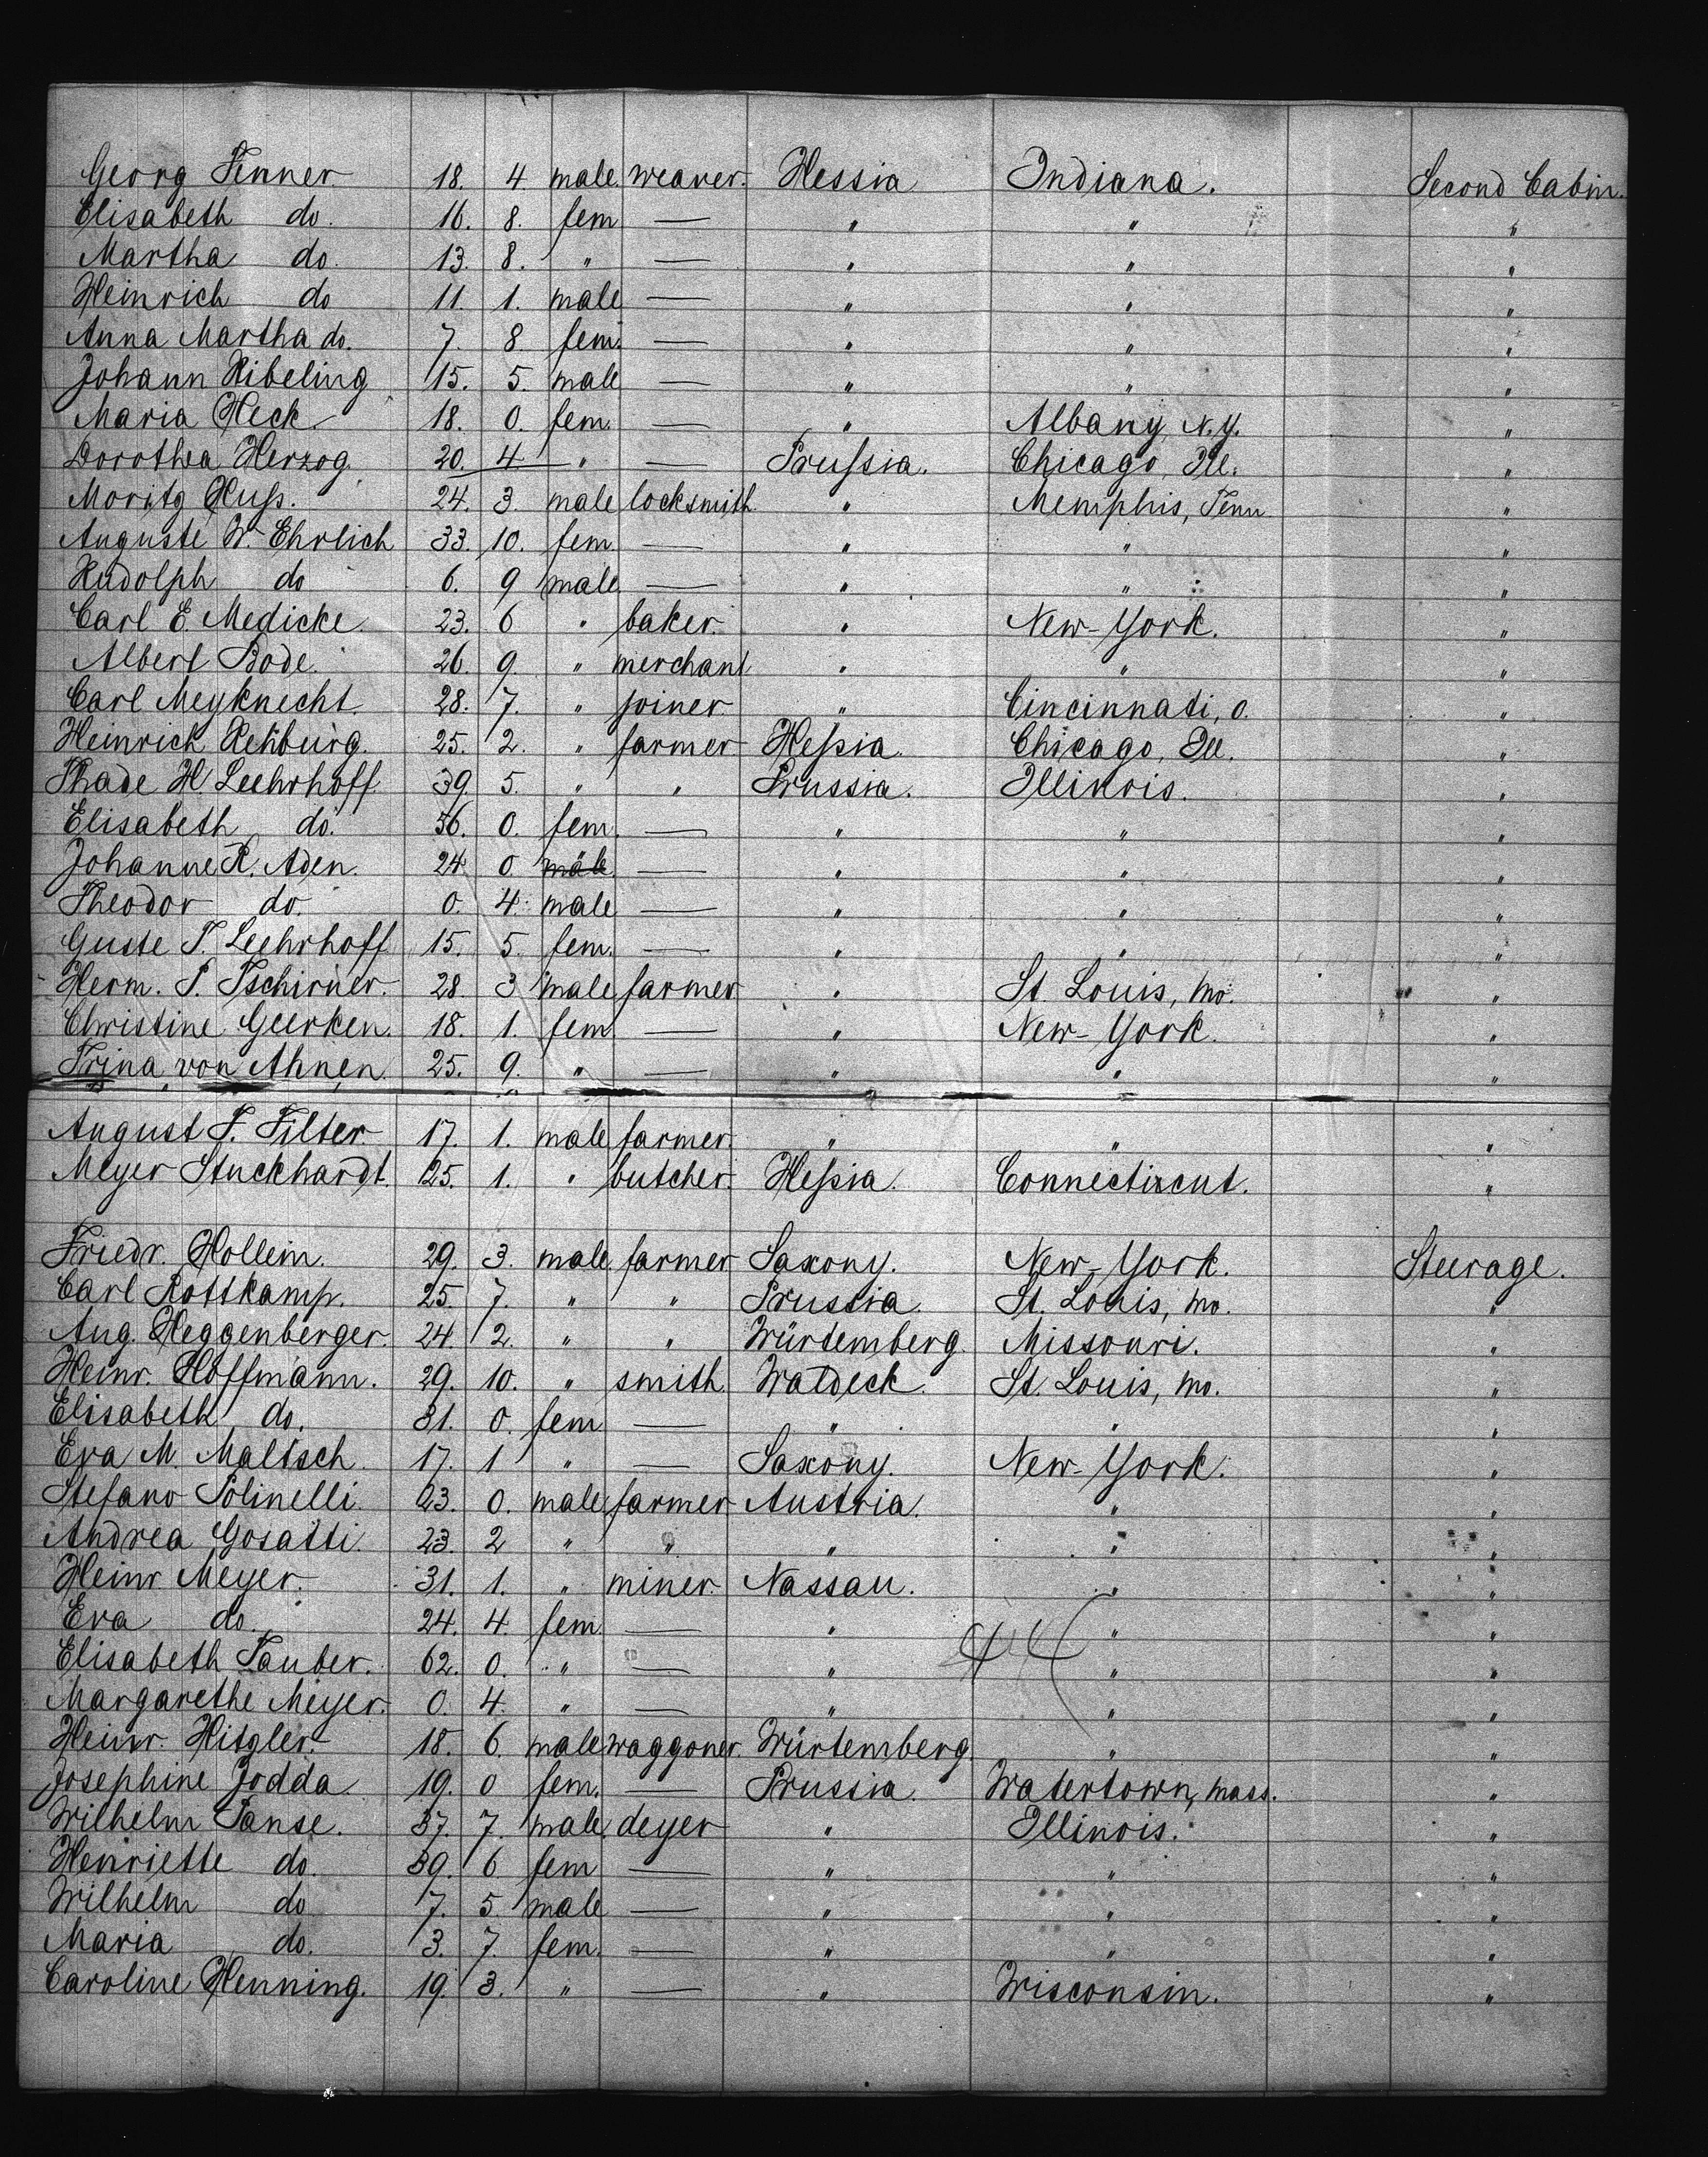 Georg Fenner. 18. 4. male. weaver. Hessia Indiana. Second Cabin.
Elisabeth do. 16. 8. fem — " " "
Martha do. 13. 8. " — " " "
Heinrich do 11. 1. male — " " "
Anna Martha do. 7. 8 fem. — " " "
Johann Ribeling 15. 5. male — " " "
Maria Heck. 18. 0. fem. — " Albany N.Y. "
Dorothea Herzog. 20. 4 " — Prussia. Chicago, Ill. "
Moritz Huss. 24. 3. male locksmith. " Memphis, Tenn "
Auguste W. Ehrlich 33. 10. fem. — " " "
Rudolph do 6. 9 male. — " " "
Carl E. Medicke. 23. 6 " baker. " New-York. "
Albert Bode. 26. 9. " merchant " " "
Carl Meyknecht. 28. 7. " joiner. " Cincinnati, O. "
Heinrich Rehburg. 25. 2. " farmer Hessia. Chicago, Ill. "
Thade H. Leehrhoff 39. 5. " " Prussia. Illinois. "
Elisabeth do. 56. 0. fem. — " " "
Johanne R. Aden. 24 0. male. — " " "
Theodor do. 0. 4. male — " " "
Guste T. Leehrhoff 15. 5. fem. — " " "
Herm. P. Tschirner. 28. 3 male farmer " St. Louis, Mo. "
Christine Geerken. 18. 1. fem — " New-York. "
Trina von Ahnen. 25. 9. " — " " "
August F. Filter 17. 1. male farmer. " " "
Meyer Stuckhardt. 25. 1. " butcher. Hessia. Connecticut. "
Friedr. Hollein. 29. 3. male. farmer Saxony. New-York. Steerage.
Carl Rottkamp. 25. 7. " " Prussia. St. Louis, Mo. "
Aug. Heggenberger. 24. 2. " " Würtemberg. Missouri. "
Heinr. Hoffmann. 29. 10. " smith. Waldeck. St. Louis, Mo. "
Elisabeth do. 31. 0. fem — " " "
Eva M. Maltsch. 17. 1 " — Saxony. New-York. "
Stefano Polinelli. 23. 0. male farmer Austria. " "
Andrea Gosatti. 23. 2 " " " " "
Heinr. Meyer. 31. 1. " miner. Nassau. " "
Eva do. 24. 4. fem. — " " "
Elisabeth Tauber. 62. 0. " — " " "
Margarethe Meyer. 0. 4. " — " " "
Heinr. Hitzler. 18. 6. male waggoner. Würtemberg. " "
Josephine Jodda. 19. 0 fem. — Prussia. Watertown, Mass. "
Wilhelm Panse. 37. 7. male. deyer " Illinois. "
Henriette do. 39. 6 fem — " " "
Wilhelm do 7. 5. male — " " "
Maria do. 3. 7. fem. — " " "
Caroline Henning. 19. 3. " — " Wisconsin. "